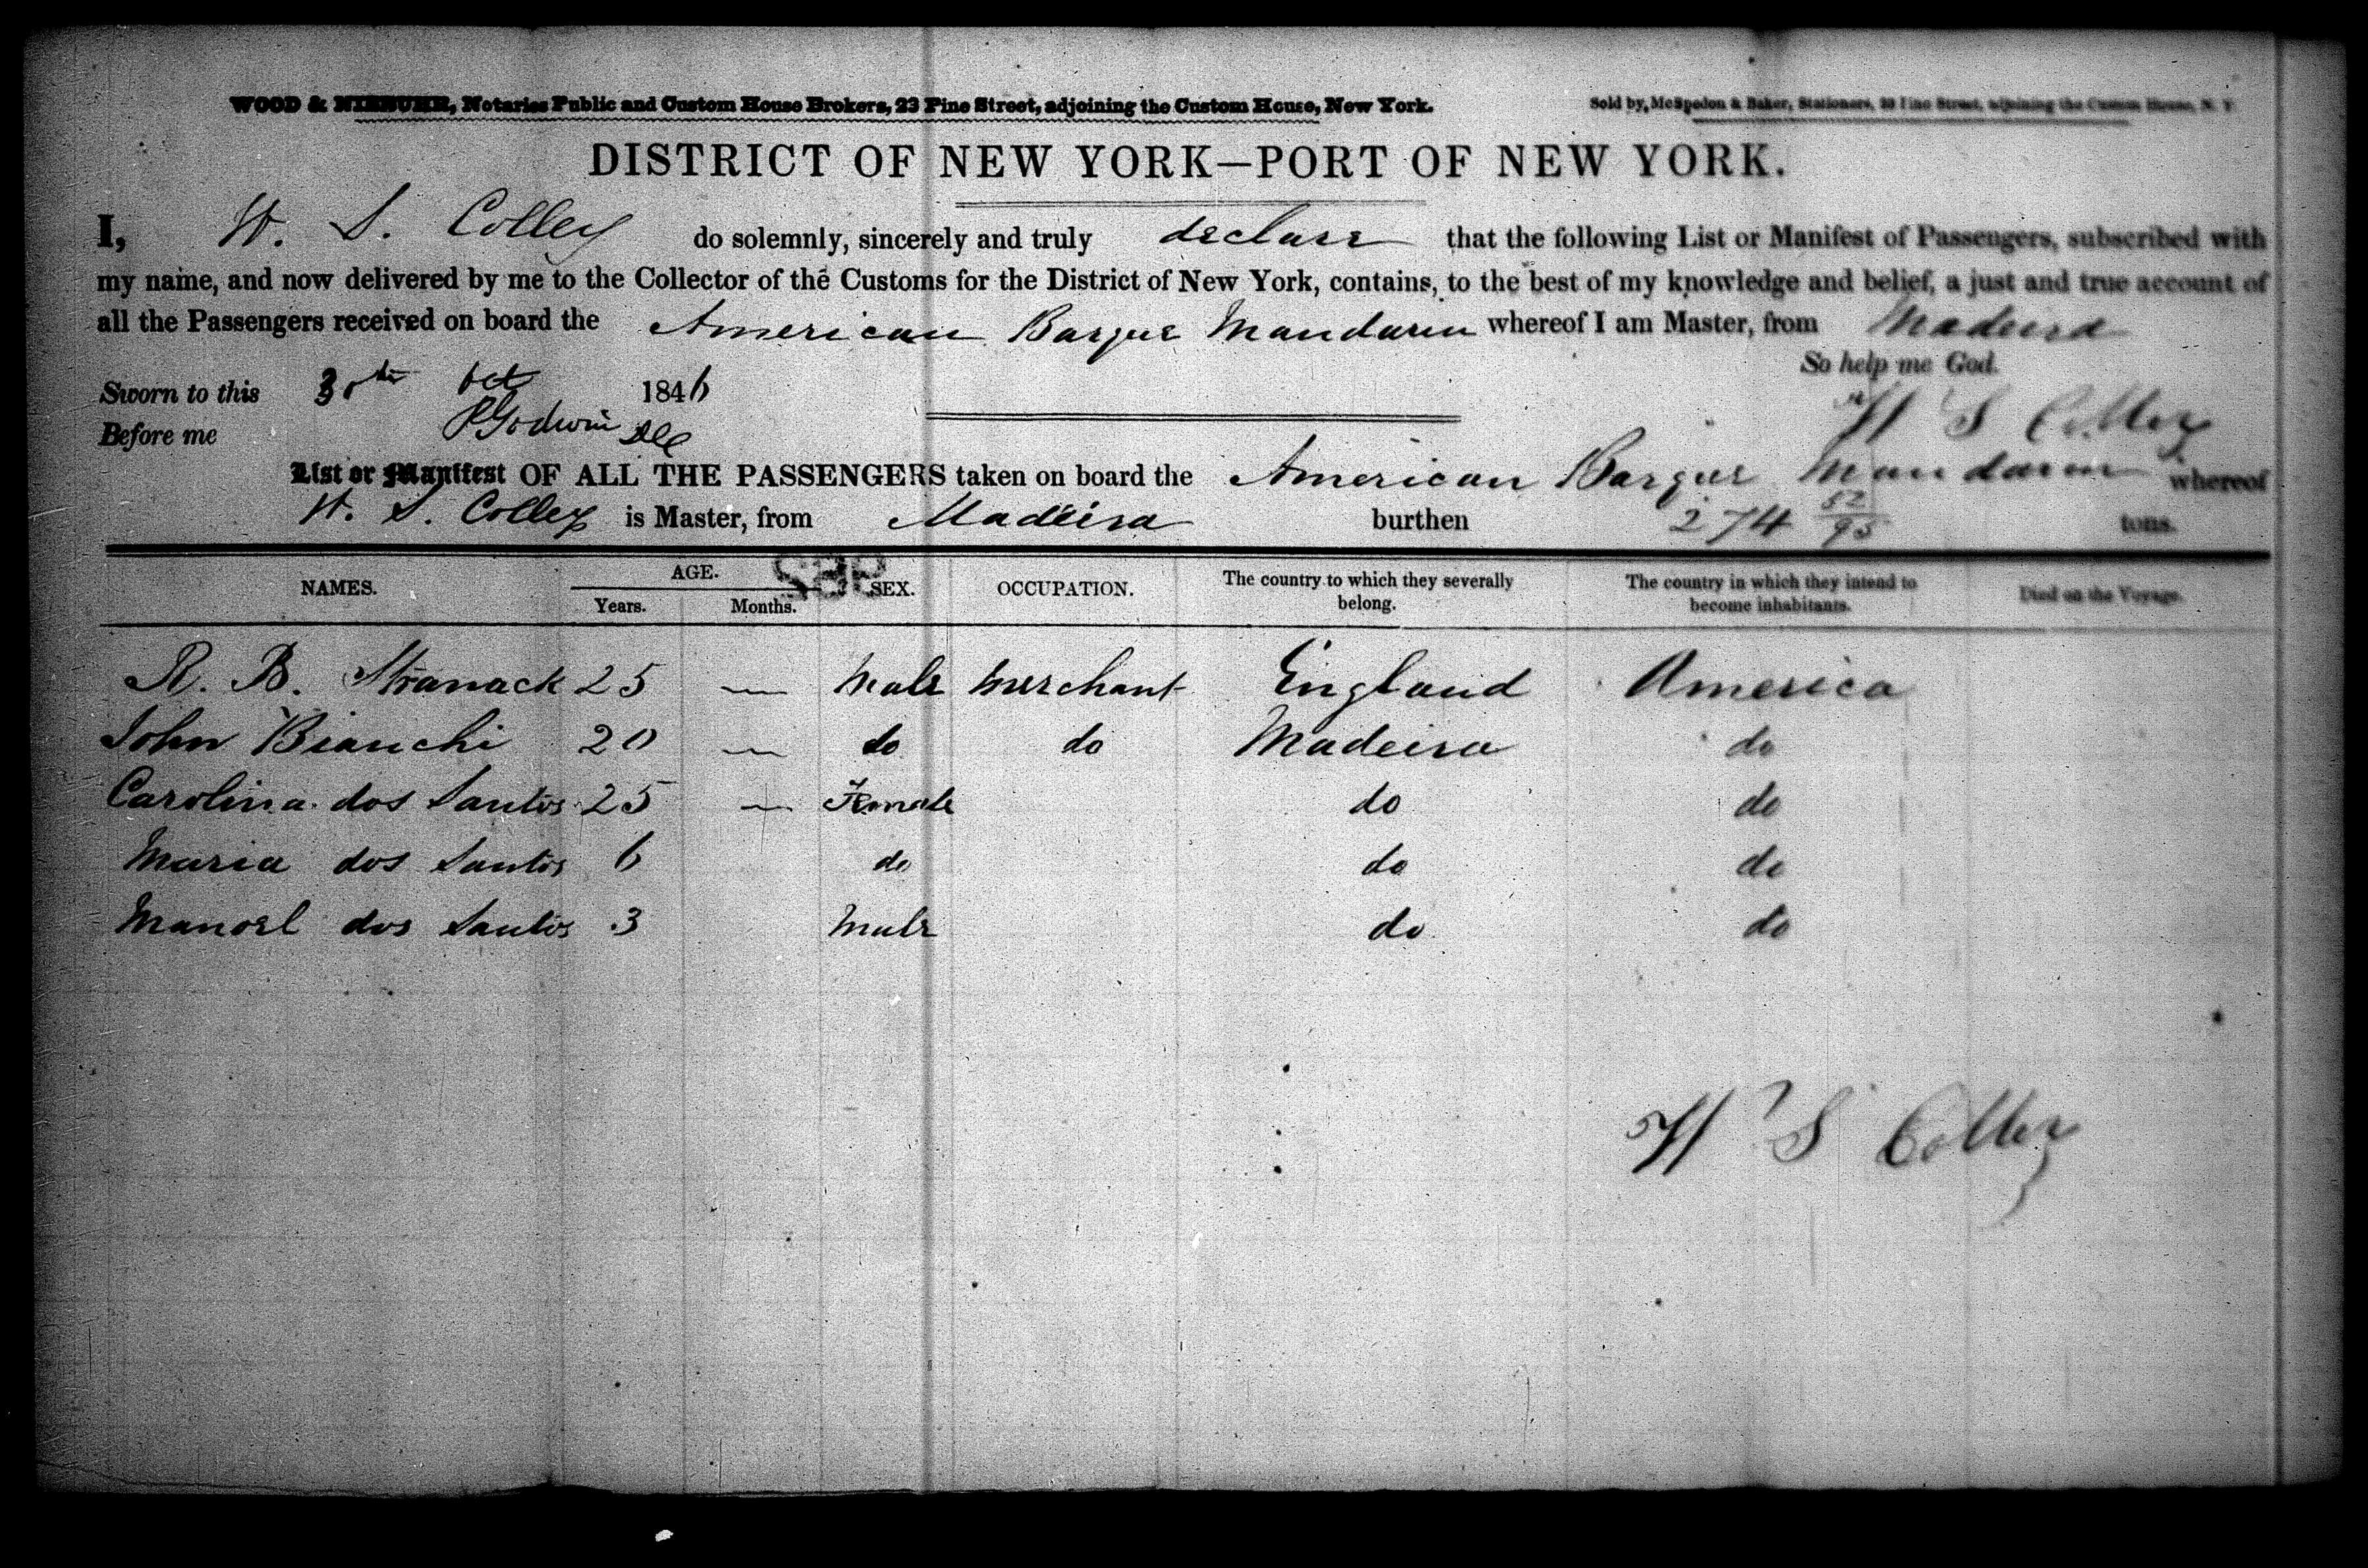 WOOD & NIEBUHR, Notaries Public and Custom House Brokers, 23 Pine Street, adjoining the Custom House, New York.
Sold by, McSpedon & Baker, Stationers, Pine Street, adjoining the Custom House, N. Y.
DISTRICT OF NEW YORK—PORT OF NEW YORK.
I, W. S. Colley do solemnly, sincerely and truly declare that the following List or Manifest of Passengers, subscribed with
my name, and now delivered by me to the Collector of the Customs for the District of New York, contains, to the best of my knowledge and belief, a just and true account of
all the Passengers received on board the American Barque Mandarin whereof I am Master, from Madeira
So help me God.
Sworn to this 30th Oct 1846
W S Colley
Before me Godwin
List or Manifest OF ALL THE PASSENGERS taken on board the American Barque Mandarin whereof
W. S. Colley is Master, from Madeira burthen 274 52/95 tons.
NAMES. AGE. SEX. OCCUPATION. The country to which they severally belong. The country in which they intend to become inhabitants. Died on the Voyage.
Years. Months.
R. B. Stranack 25 — Male Merchant England America
John Bianchi 20 — do do Madeira do
Carolina dos Santos 25 — Female do do
Maria dos Santos 6 do do do
Manoel dos Santos 3 Male do do
W S Colley